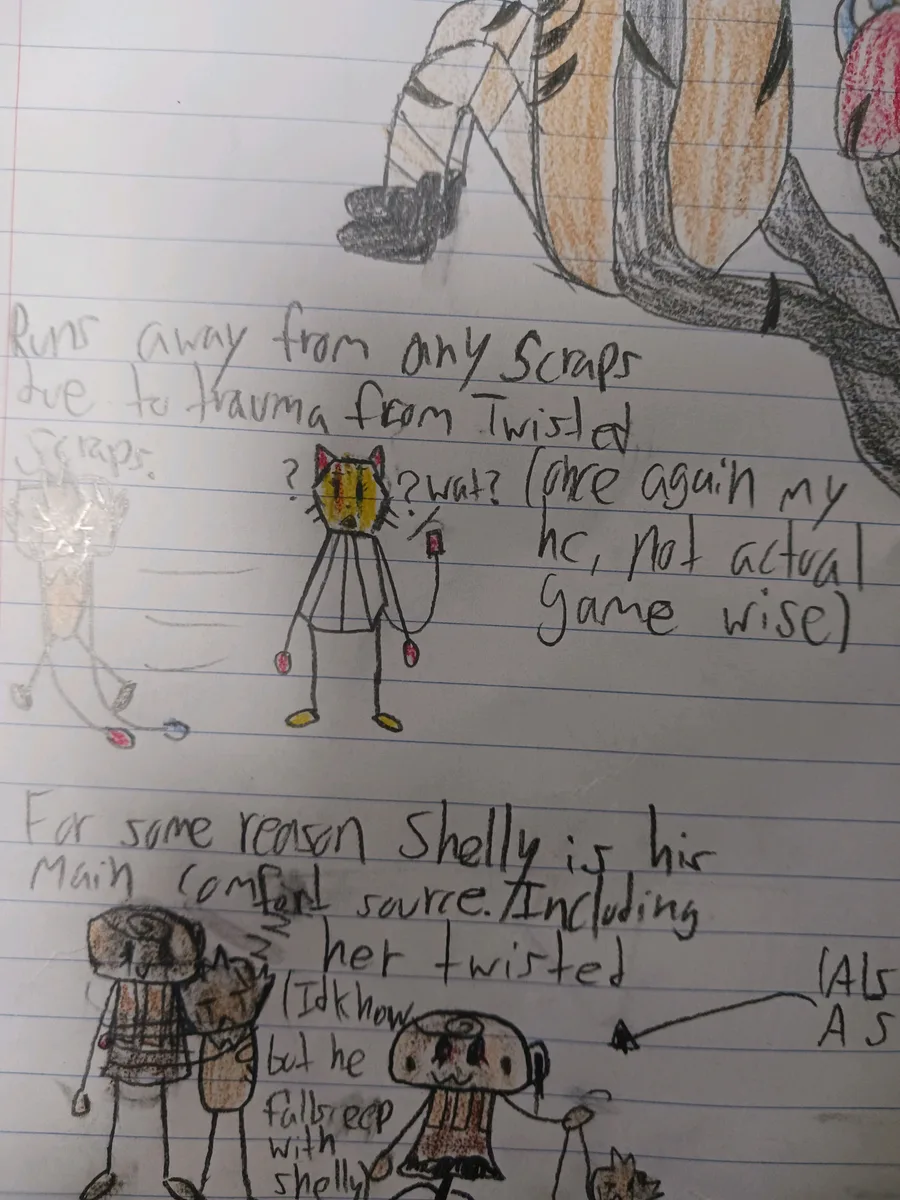 Runs away from any Scraps
due to trauma from Twisted
Scraps.
? ? wat? (once again my
hc, not actual
game wise)
For some reason Shelly is his
Main comfort source./Including
her twisted
zzz
(Idk how
but he
falls
with
shelly)
(Als
A S